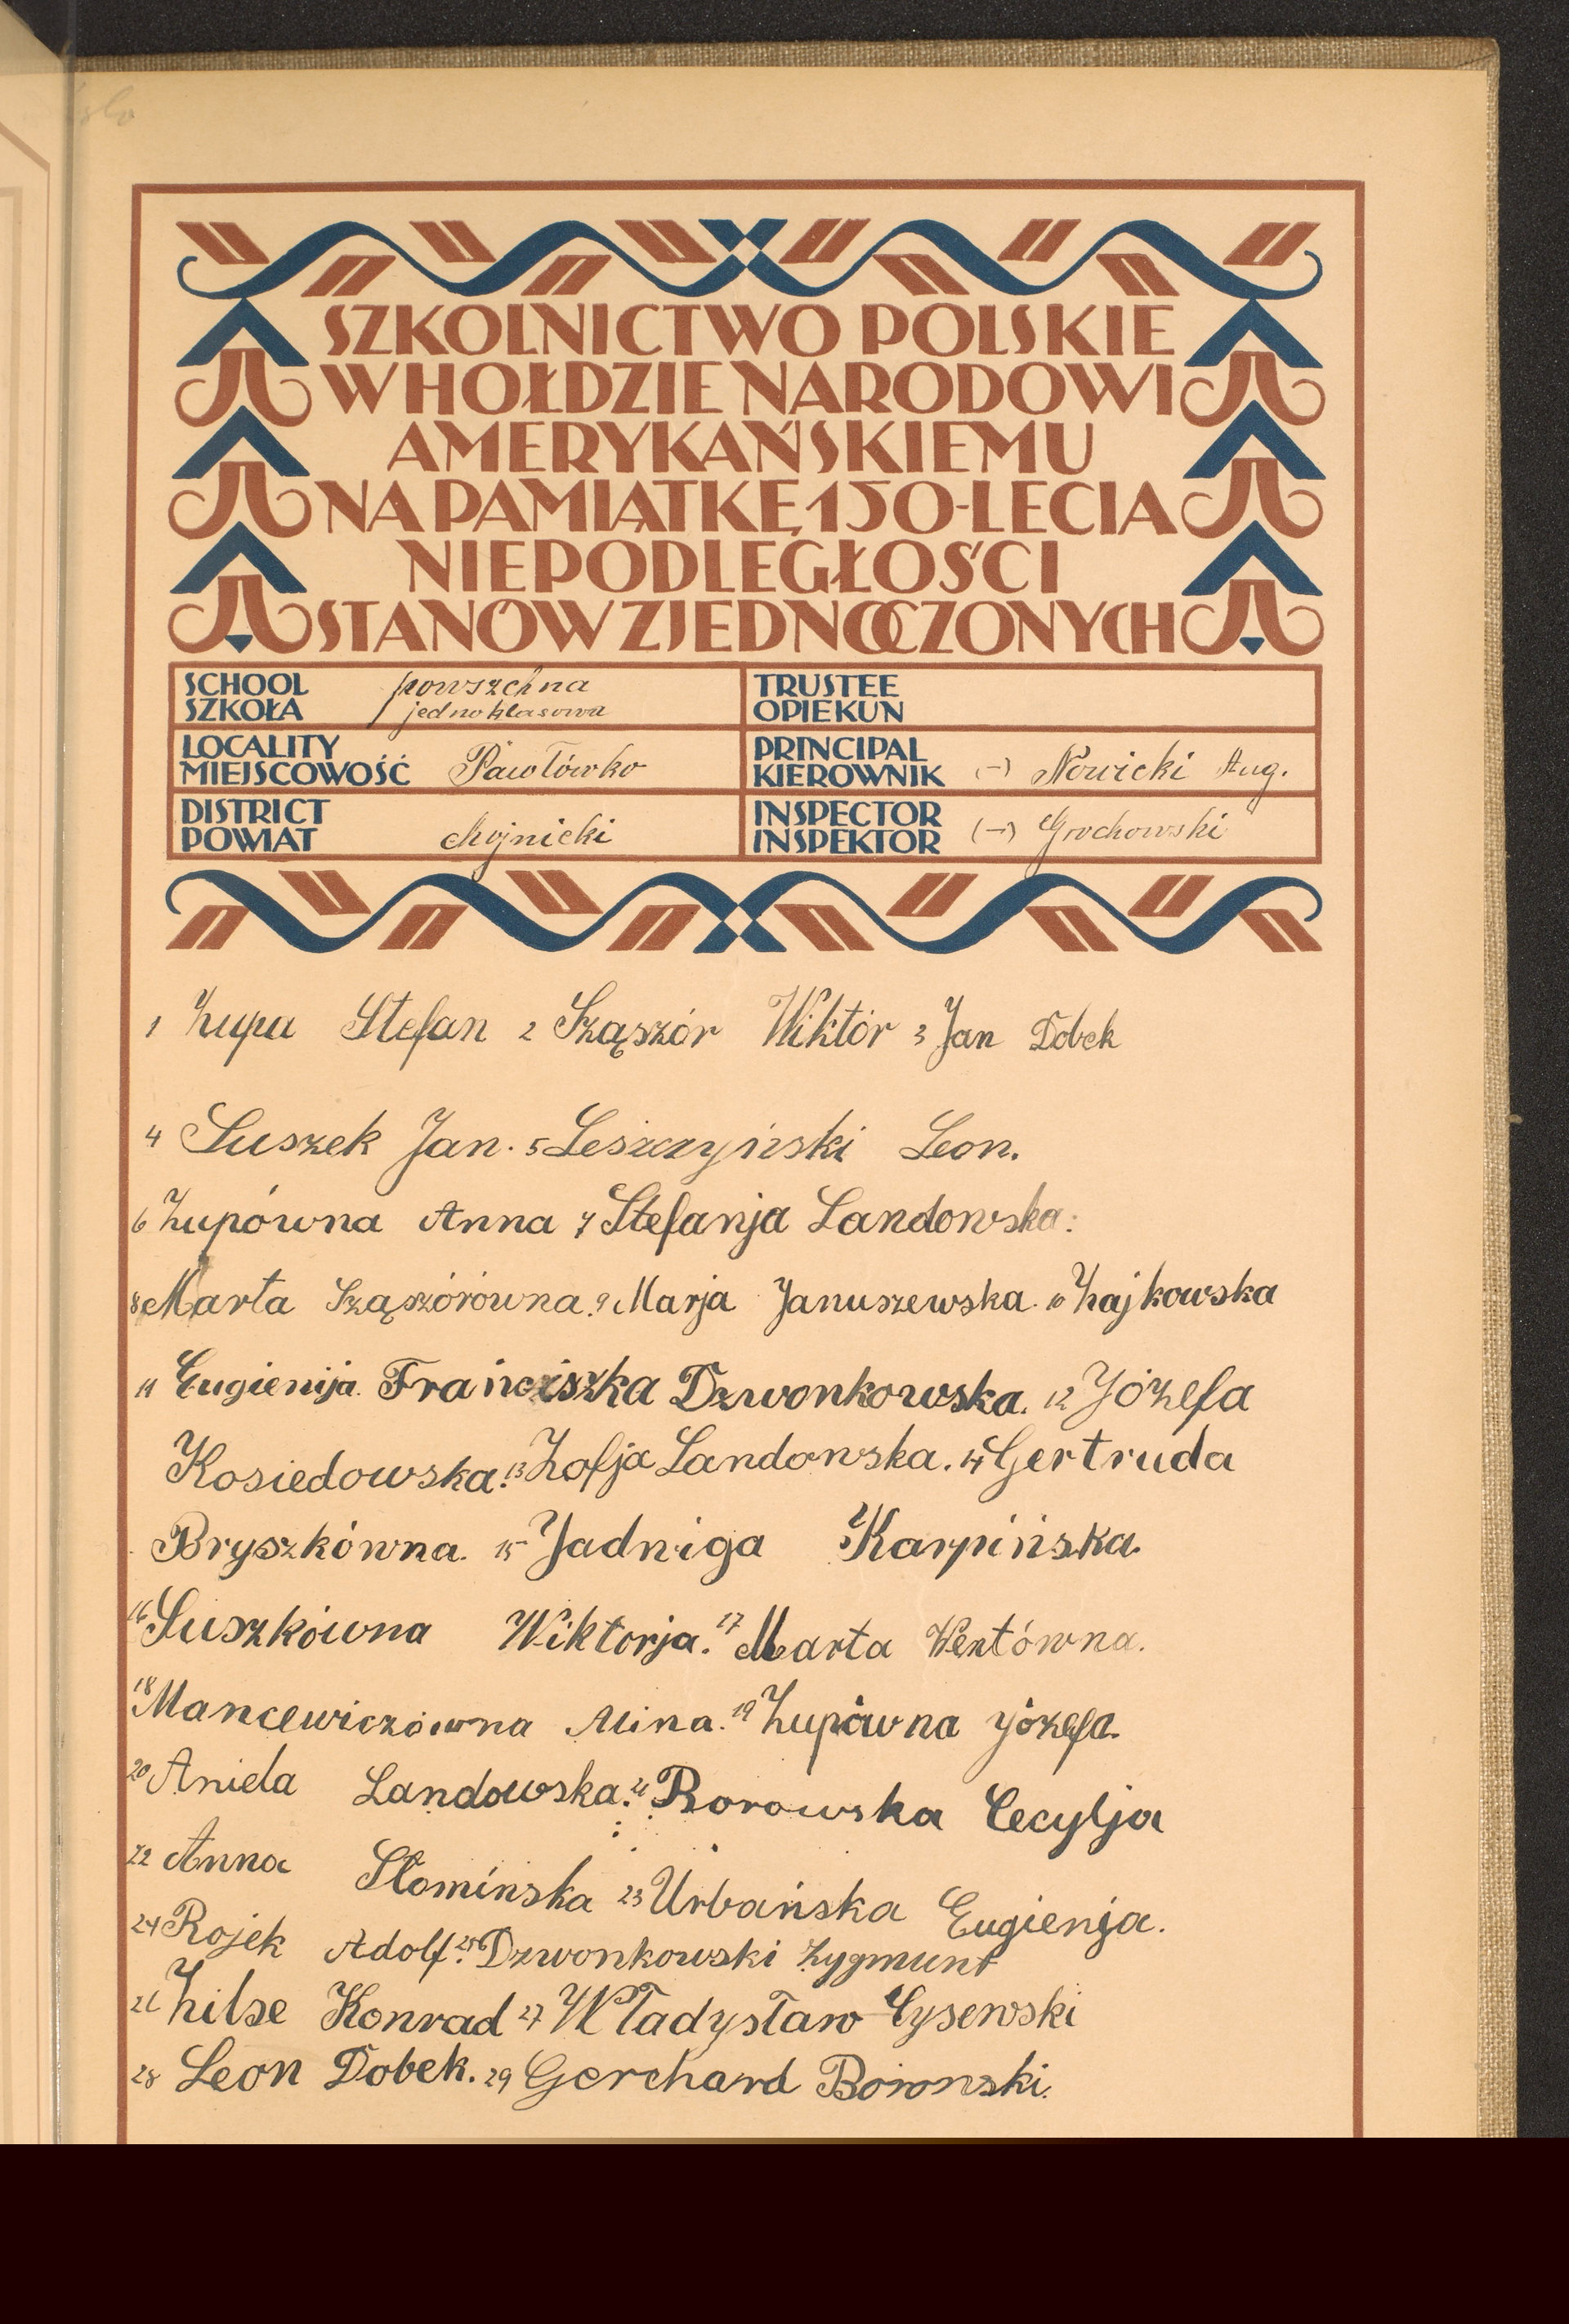 SZKOLNICTWO POLSKIE
W HOŁDZIE NARODOWI
AMERYKAŃSKIEMU
NA PAMIĄTKĘ 150-LECIA
NIEPODLEGŁOŚCI
STANÓW ZJEDNOCZONYCH
SCHOOL
SZKOŁA
powszechna
jednoklasowa
TRUSTEE
OPIEKUN
LOCALITY
MIEJSCOWOŚĆ
Pawłówko
PRINCIPAL
KIEROWNIK
(-) Nowicki Aug.
DISTRICT
POWIAT
chojnicki
INSPECTOR
INSPEKTOR
(-) Grochowski
1 Zupa Stefan 2 Sząszór Wiktór 3 Jan Dobek
4 Suszek Jan. 5 Leszczyński Leon.
6 Zupówna Anna 7 Stefanja Landowska.
8 Marta Sząszórówna. 9 Marja Januszewska. 10 Zajkowska
11 Eugienija. Franciszka Dzwonkowska. 12 Józefa
Kosiedowska. 13 Zofja Landowska. 14 Gertruda
Bryszkówna. 15 Jadwiga Karpińska.
16 Suszkówna Wiktorja. 17 Marta Wentówna.
18 Mancewiczówna Mina. 19 Zupówna Józefa.
20 Aniela Landowska. 21 Borowska Cecylja
22 Anna Słomińska 23 Urbańska Eugienja.
24 Rojek Adolf. 25 Dzwonkowski Zygmunt
26 Zilse Konrad 27 Władysław Cysewski
28 Leon Dobek. 29 Gerchard Borowski.